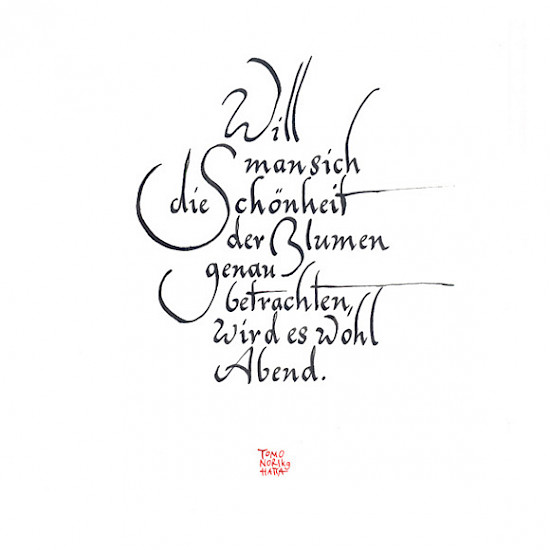 Will
man sich
die Schönheit
der Blumen
genau
betrachten,
wird es wohl
Abend.
TOMO
NORI
HATTA